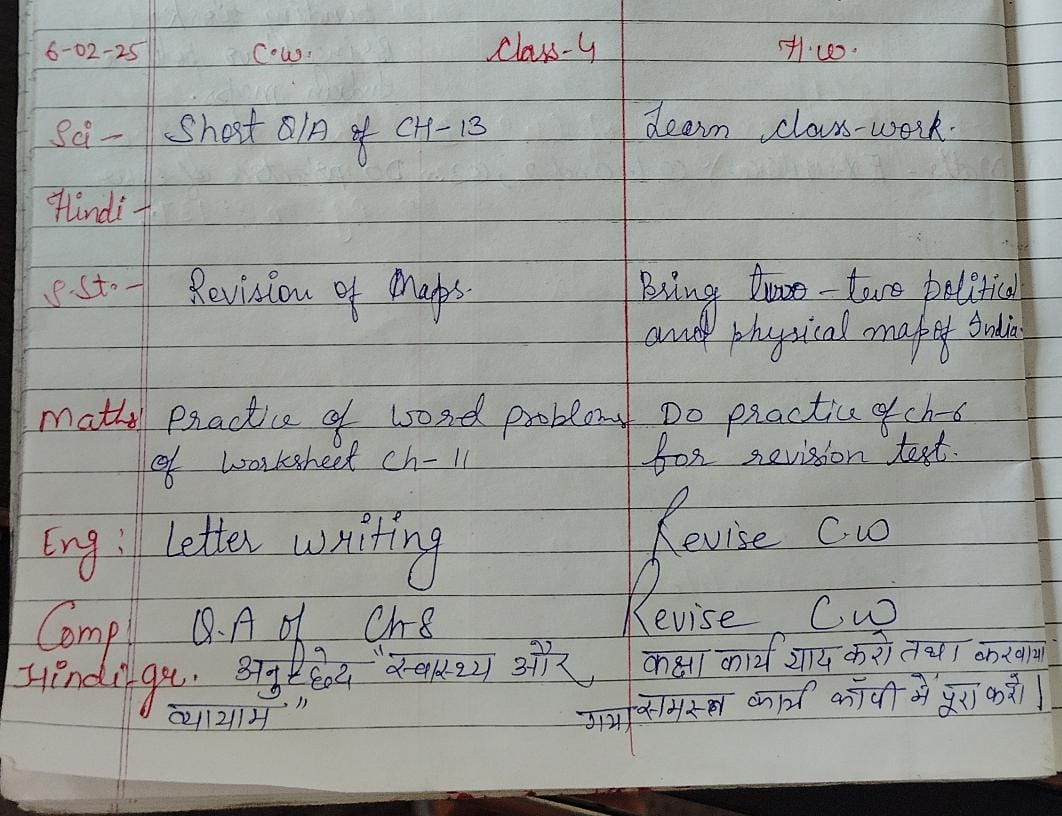 6-02-25 C.W. Class-4 H.W.
Sci - Short Q/A of CH-13 Learn class-work.
Hindi -
S.St. - Revision of Maps. Bring two-two political
and physical map of India.
Maths Practice of word problems Do practice of ch-6
of worksheet ch-11 for revision test.
Eng: Letter writing Revise C.W
Comp Q.A of Ch 8 Revise C.W
Hindi-gr. अनुच्छेद "स्वास्थ्य और कक्षा कार्य याद करो तथा करवाया
व्यायाम" गया समस्त कार्य कॉपी में पूरा करो।